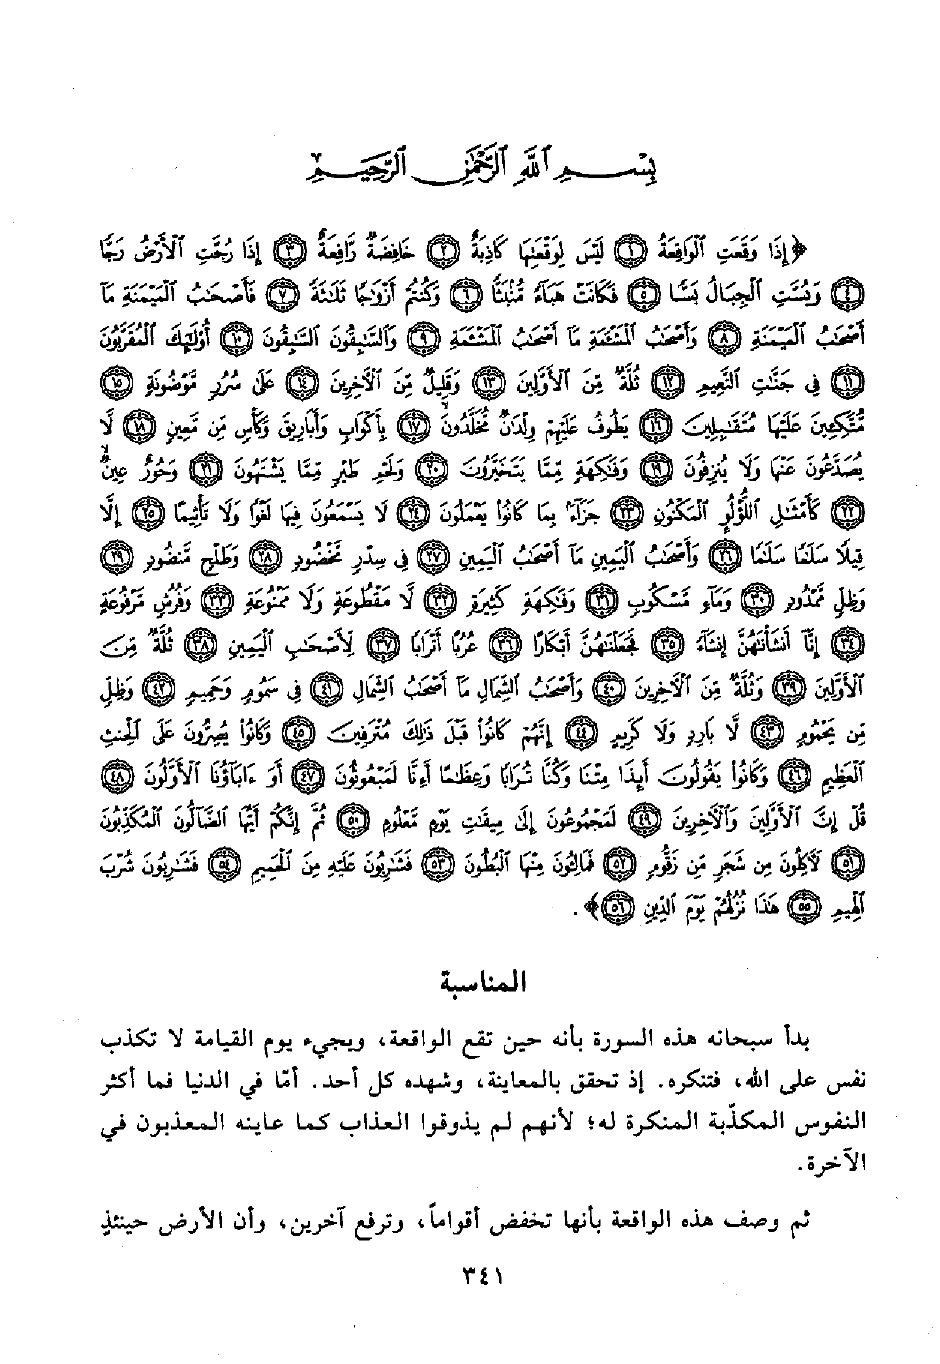 بِسْمِ اللَّهِ الرَّحْمَٰنِ الرَّحِيمِ
﴿إِذَا وَقَعَتِ الْوَاقِعَةُ ١ لَيْسَ لِوَقْعَتِهَا كَاذِبَةٌ ٢ خَافِضَةٌ رَّافِعَةٌ ٣ إِذَا رُجَّتِ الْأَرْضُ رَجًّا
٤ وَبُسَّتِ الْجِبَالُ بَسًّا ٥ فَكَانَتْ هَبَاءً مُّنۢبَثًّا ٦ وَكُنتُمْ أَزْوَٰجًا ثَلَٰثَةً ٧ فَأَصْحَٰبُ الْمَيْمَنَةِ مَآ
أَصْحَٰبُ الْمَيْمَنَةِ ٨ وَأَصْحَٰبُ الْمَشْـَٔمَةِ مَآ أَصْحَٰبُ الْمَشْـَٔمَةِ ٩ وَالسَّٰبِقُونَ السَّٰبِقُونَ ١٠ أُو۟لَٰٓئِكَ الْمُقَرَّبُونَ
١١ فِى جَنَّٰتِ النَّعِيمِ ١٢ ثُلَّةٌ مِّنَ الْأَوَّلِينَ ١٣ وَقَلِيلٌ مِّنَ الْآخِرِينَ ١٤ عَلَىٰ سُرُرٍ مَّوْضُونَةٍ ١٥
مُّتَّكِـِٔينَ عَلَيْهَا مُتَقَٰبِلِينَ ١٦ يَطُوفُ عَلَيْهِمْ وِلْدَٰنٌ مُّخَلَّدُونَ ١٧ بِأَكْوَابٍ وَأَبَارِيقَ وَكَأْسٍ مِّن مَّعِينٍ ١٨ لَّا
يُصَدَّعُونَ عَنْهَا وَلَا يُنزِفُونَ ١٩ وَفَٰكِهَةٍ مِّمَّا يَتَخَيَّرُونَ ٢٠ وَلَحْمِ طَيْرٍ مِّمَّا يَشْتَهُونَ ٢١ وَحُورٌ عِينٌ
٢٢ كَأَمْثَٰلِ اللُّؤْلُؤِ الْمَكْنُونِ ٢٣ جَزَآءًۢ بِمَا كَانُوا۟ يَعْمَلُونَ ٢٤ لَا يَسْمَعُونَ فِيهَا لَغْوًا وَلَا تَأْثِيمًا ٢٥ إِلَّا
قِيلًا سَلَٰمًا سَلَٰمًا ٢٦ وَأَصْحَٰبُ الْيَمِينِ مَآ أَصْحَٰبُ الْيَمِينِ ٢٧ فِى سِدْرٍ مَّخْضُودٍ ٢٨ وَطَلْحٍ مَّنضُودٍ ٢٩
وَظِلٍّ مَّمْدُودٍ ٣٠ وَمَآءٍ مَّسْكُوبٍ ٣١ وَفَٰكِهَةٍ كَثِيرَةٍ ٣٢ لَّا مَقْطُوعَةٍ وَلَا مَمْنُوعَةٍ ٣٣ وَفُرُشٍ مَّرْفُوعَةٍ
٣٤ إِنَّآ أَنشَأْنَٰهُنَّ إِنشَآءً ٣٥ فَجَعَلْنَٰهُنَّ أَبْكَارًا ٣٦ عُرُبًا أَتْرَابًا ٣٧ لِّأَصْحَٰبِ الْيَمِينِ ٣٨ ثُلَّةٌ مِّنَ
الْأَوَّلِينَ ٣٩ وَثُلَّةٌ مِّنَ الْآخِرِينَ ٤٠ وَأَصْحَٰبُ الشِّمَالِ مَآ أَصْحَٰبُ الشِّمَالِ ٤١ فِى سَمُومٍ وَحَمِيمٍ ٤٢ وَظِلٍّ
مِّن يَحْمُومٍ ٤٣ لَّا بَارِدٍ وَلَا كَرِيمٍ ٤٤ إِنَّهُمْ كَانُوا۟ قَبْلَ ذَٰلِكَ مُتْرَفِينَ ٤٥ وَكَانُوا۟ يُصِرُّونَ عَلَى الْحِنثِ
الْعَظِيمِ ٤٦ وَكَانُوا۟ يَقُولُونَ أَئِذَا مِتْنَا وَكُنَّا تُرَابًا وَعِظَٰمًا أَءِنَّا لَمَبْعُوثُونَ ٤٧ أَوَ ءَابَآؤُنَا الْأَوَّلُونَ ٤٨
قُلْ إِنَّ الْأَوَّلِينَ وَالْآخِرِينَ ٤٩ لَمَجْمُوعُونَ إِلَىٰ مِيقَٰتِ يَوْمٍ مَّعْلُومٍ ٥٠ ثُمَّ إِنَّكُمْ أَيُّهَا الضَّآلُّونَ الْمُكَذِّبُونَ
٥١ لَآكِلُونَ مِن شَجَرٍ مِّن زَقُّومٍ ٥٢ فَمَالِـُٔونَ مِنْهَا الْبُطُونَ ٥٣ فَشَٰرِبُونَ عَلَيْهِ مِنَ الْحَمِيمِ ٥٤ فَشَٰرِبُونَ شُرْبَ
الْهِيمِ ٥٥ هَٰذَا نُزُلُهُمْ يَوْمَ الدِّينِ ٥٦﴾.
المناسبة
بدأ سبحانه هذه السورة بأنه حين تقع الواقعة، ويجيء يوم القيامة لا تكذب
نفس على الله، فتنكره. إذ تحقق بالمعاينة، وشهده كل أحد. أمّا في الدنيا فما أكثر
النفوس المكذّبة المنكرة له؛ لأنهم لم يذوقوا العذاب كما عاينه المعذبون في
الآخرة.
ثم وصف هذه الواقعة بأنها تخفض أقواماً، وترفع آخرين، وأن الأرض حينئذٍ
٣٤١